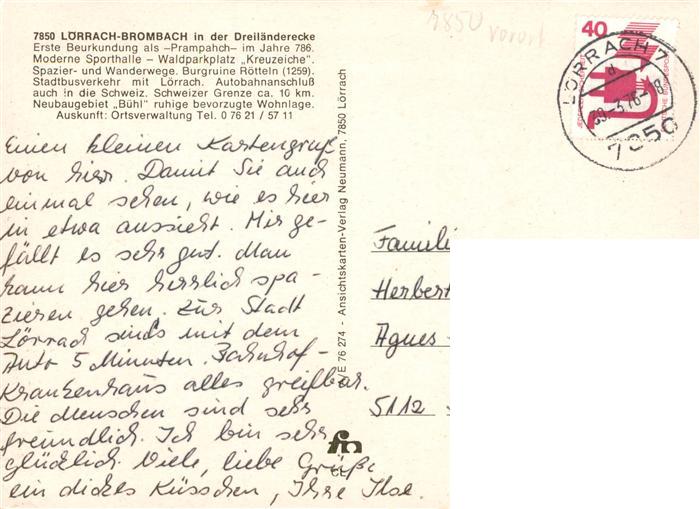 7850 LÖRRACH-BROMBACH in der Dreiländerecke
Erste Beurkundung als –Prampahch– im Jahre 786.
Moderne Sporthalle – Waldparkplatz „Kreuzeiche“.
Spazier- und Wanderwege. Burgruine Rötteln (1259).
Stadtbusverkehr mit Lörrach. Autobahnanschluß
auch in die Schweiz. Schweizer Grenze ca. 10 km.
Neubaugebiet „Bühl“ ruhige bevorzugte Wohnlage.
Auskunft: Ortsverwaltung Tel. 0 76 21 / 57 11
Einen kleinen Kartengruß
von hier. Damit Sie auch
einmal sehen, wie es hier
in etwa aussieht. Mir ge-
fällt es sehr gut. Man
kann hier herrlich spa-
zieren gehen. Zur Stadt
Lörrach sinds mit dem
Auto 5 Minuten. Bahnhof-
Krankenhaus alles greifbar.
Die Menschen sind sehr
freundlich. Ich bin sehr
glücklich. Viele, liebe Grüße
ein dickes Küsschen, Ihre Ilse.
E 76 274 - Ansichtskarten-Verlag Neumann, 7850 Lörrach
fn
7850
vorort
40
LÖRRACH 7
d
7850
Famili
Herbert
Agnes -
5112